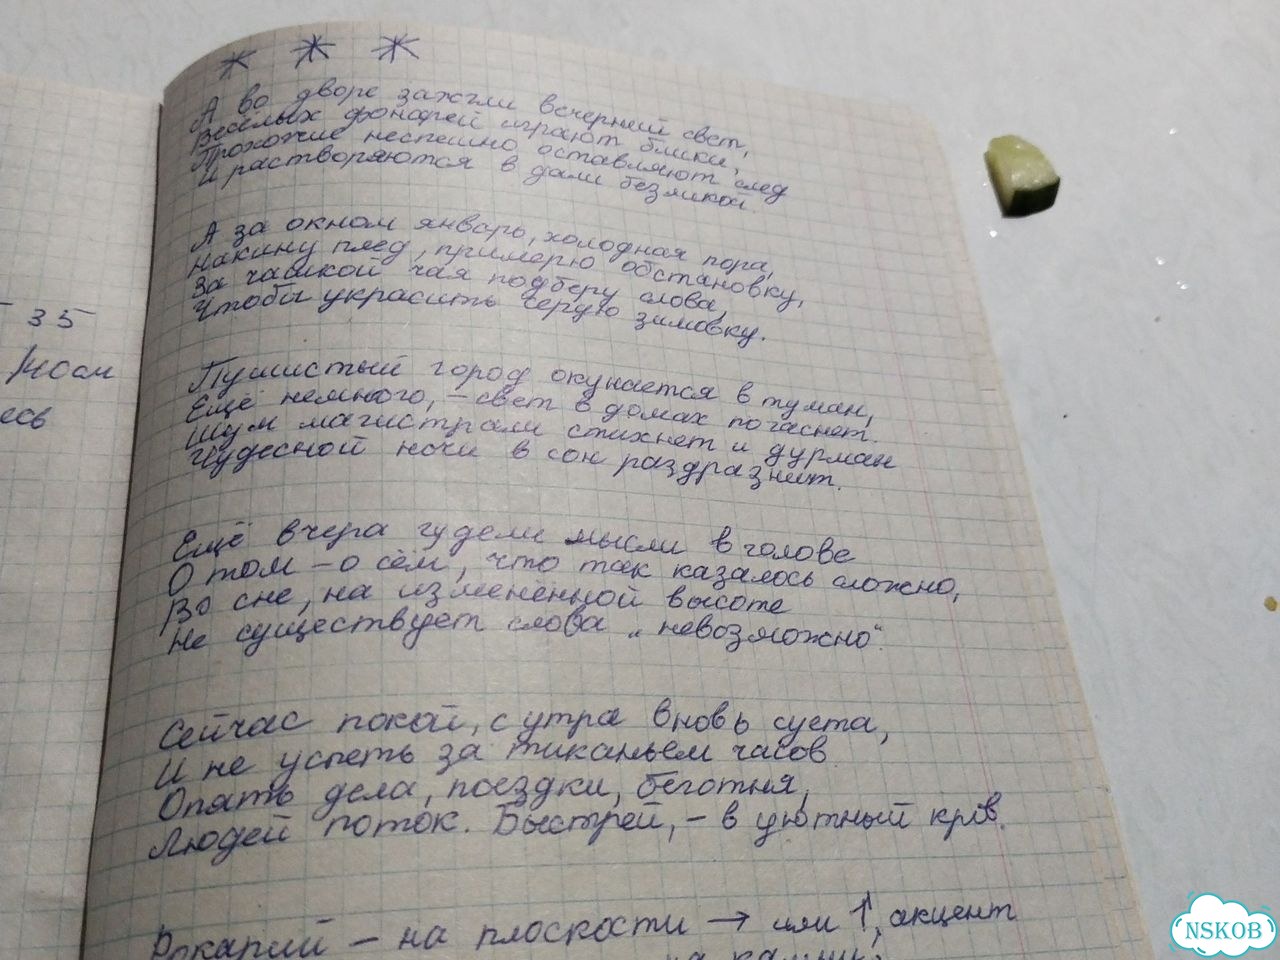 * * *
А во дворе зажгли вечерний свет,
Весёлых фонарей играют блики,
Прохожие неспешно оставляют след
И растворяются в дали безликой.
А за окном январь, холодная пора,
Накину плед, примерю обстановку,
За чашкой чая подберу слова,
Чтобы украсить серую зимовку.
Пушистый город окунается в туман,
Ещё немного, – свет в домах погаснет.
Шум магистрали стихнет и дурман
Чудесной ночи в сон раздразнит.
Ещё вчера гудели мысли в голове
О том – о сём, что так казалось сложно,
Во сне, на изменённой высоте
Не существует слова „невозможно“.
Сейчас покой, с утра вновь суета,
И не успеть за тиканьем часов.
Опять дела, поездки, беготня,
Людей поток. Быстрей, – в уютный кров.
Рокарий – на плоскости → или ↑, акцент
на камни;
35
есь
NSKOB